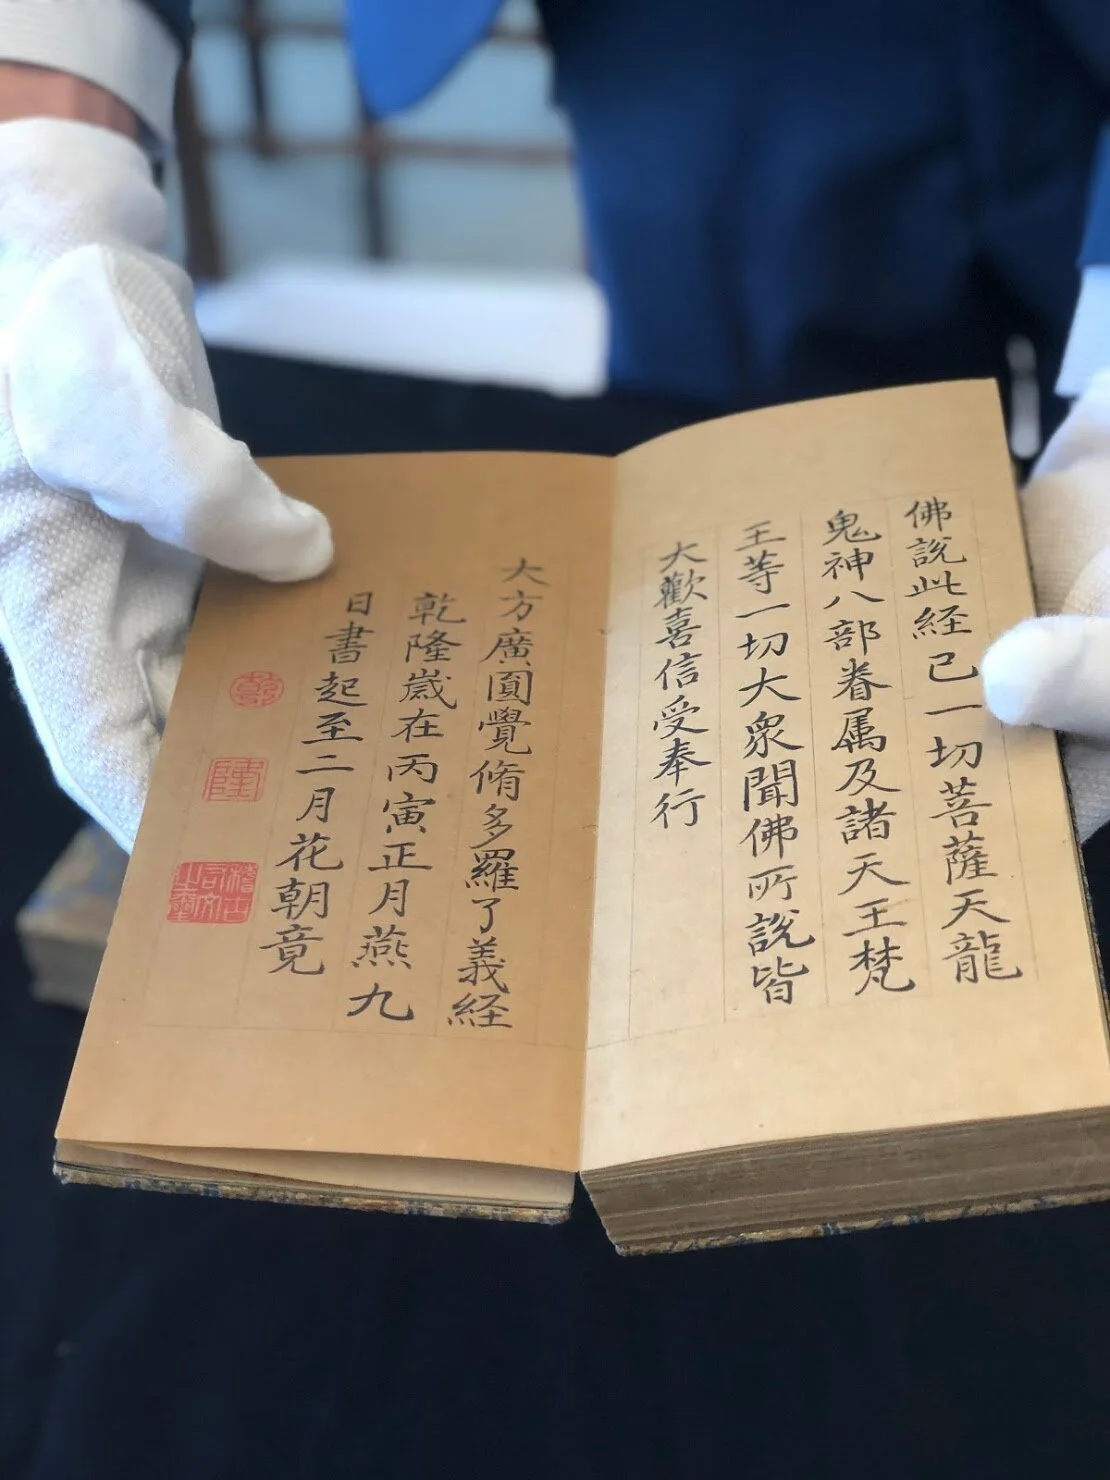 佛說此經已一切菩薩天龍
鬼神八部眷属及諸天王梵
王等一切大衆聞佛所說皆
大歡喜信受奉行
大方廣圓覺脩多羅了義経
乾隆嵗在丙寅正月燕九
日書起至二月花朝竟
乾
隆
稽古
右文
之璽